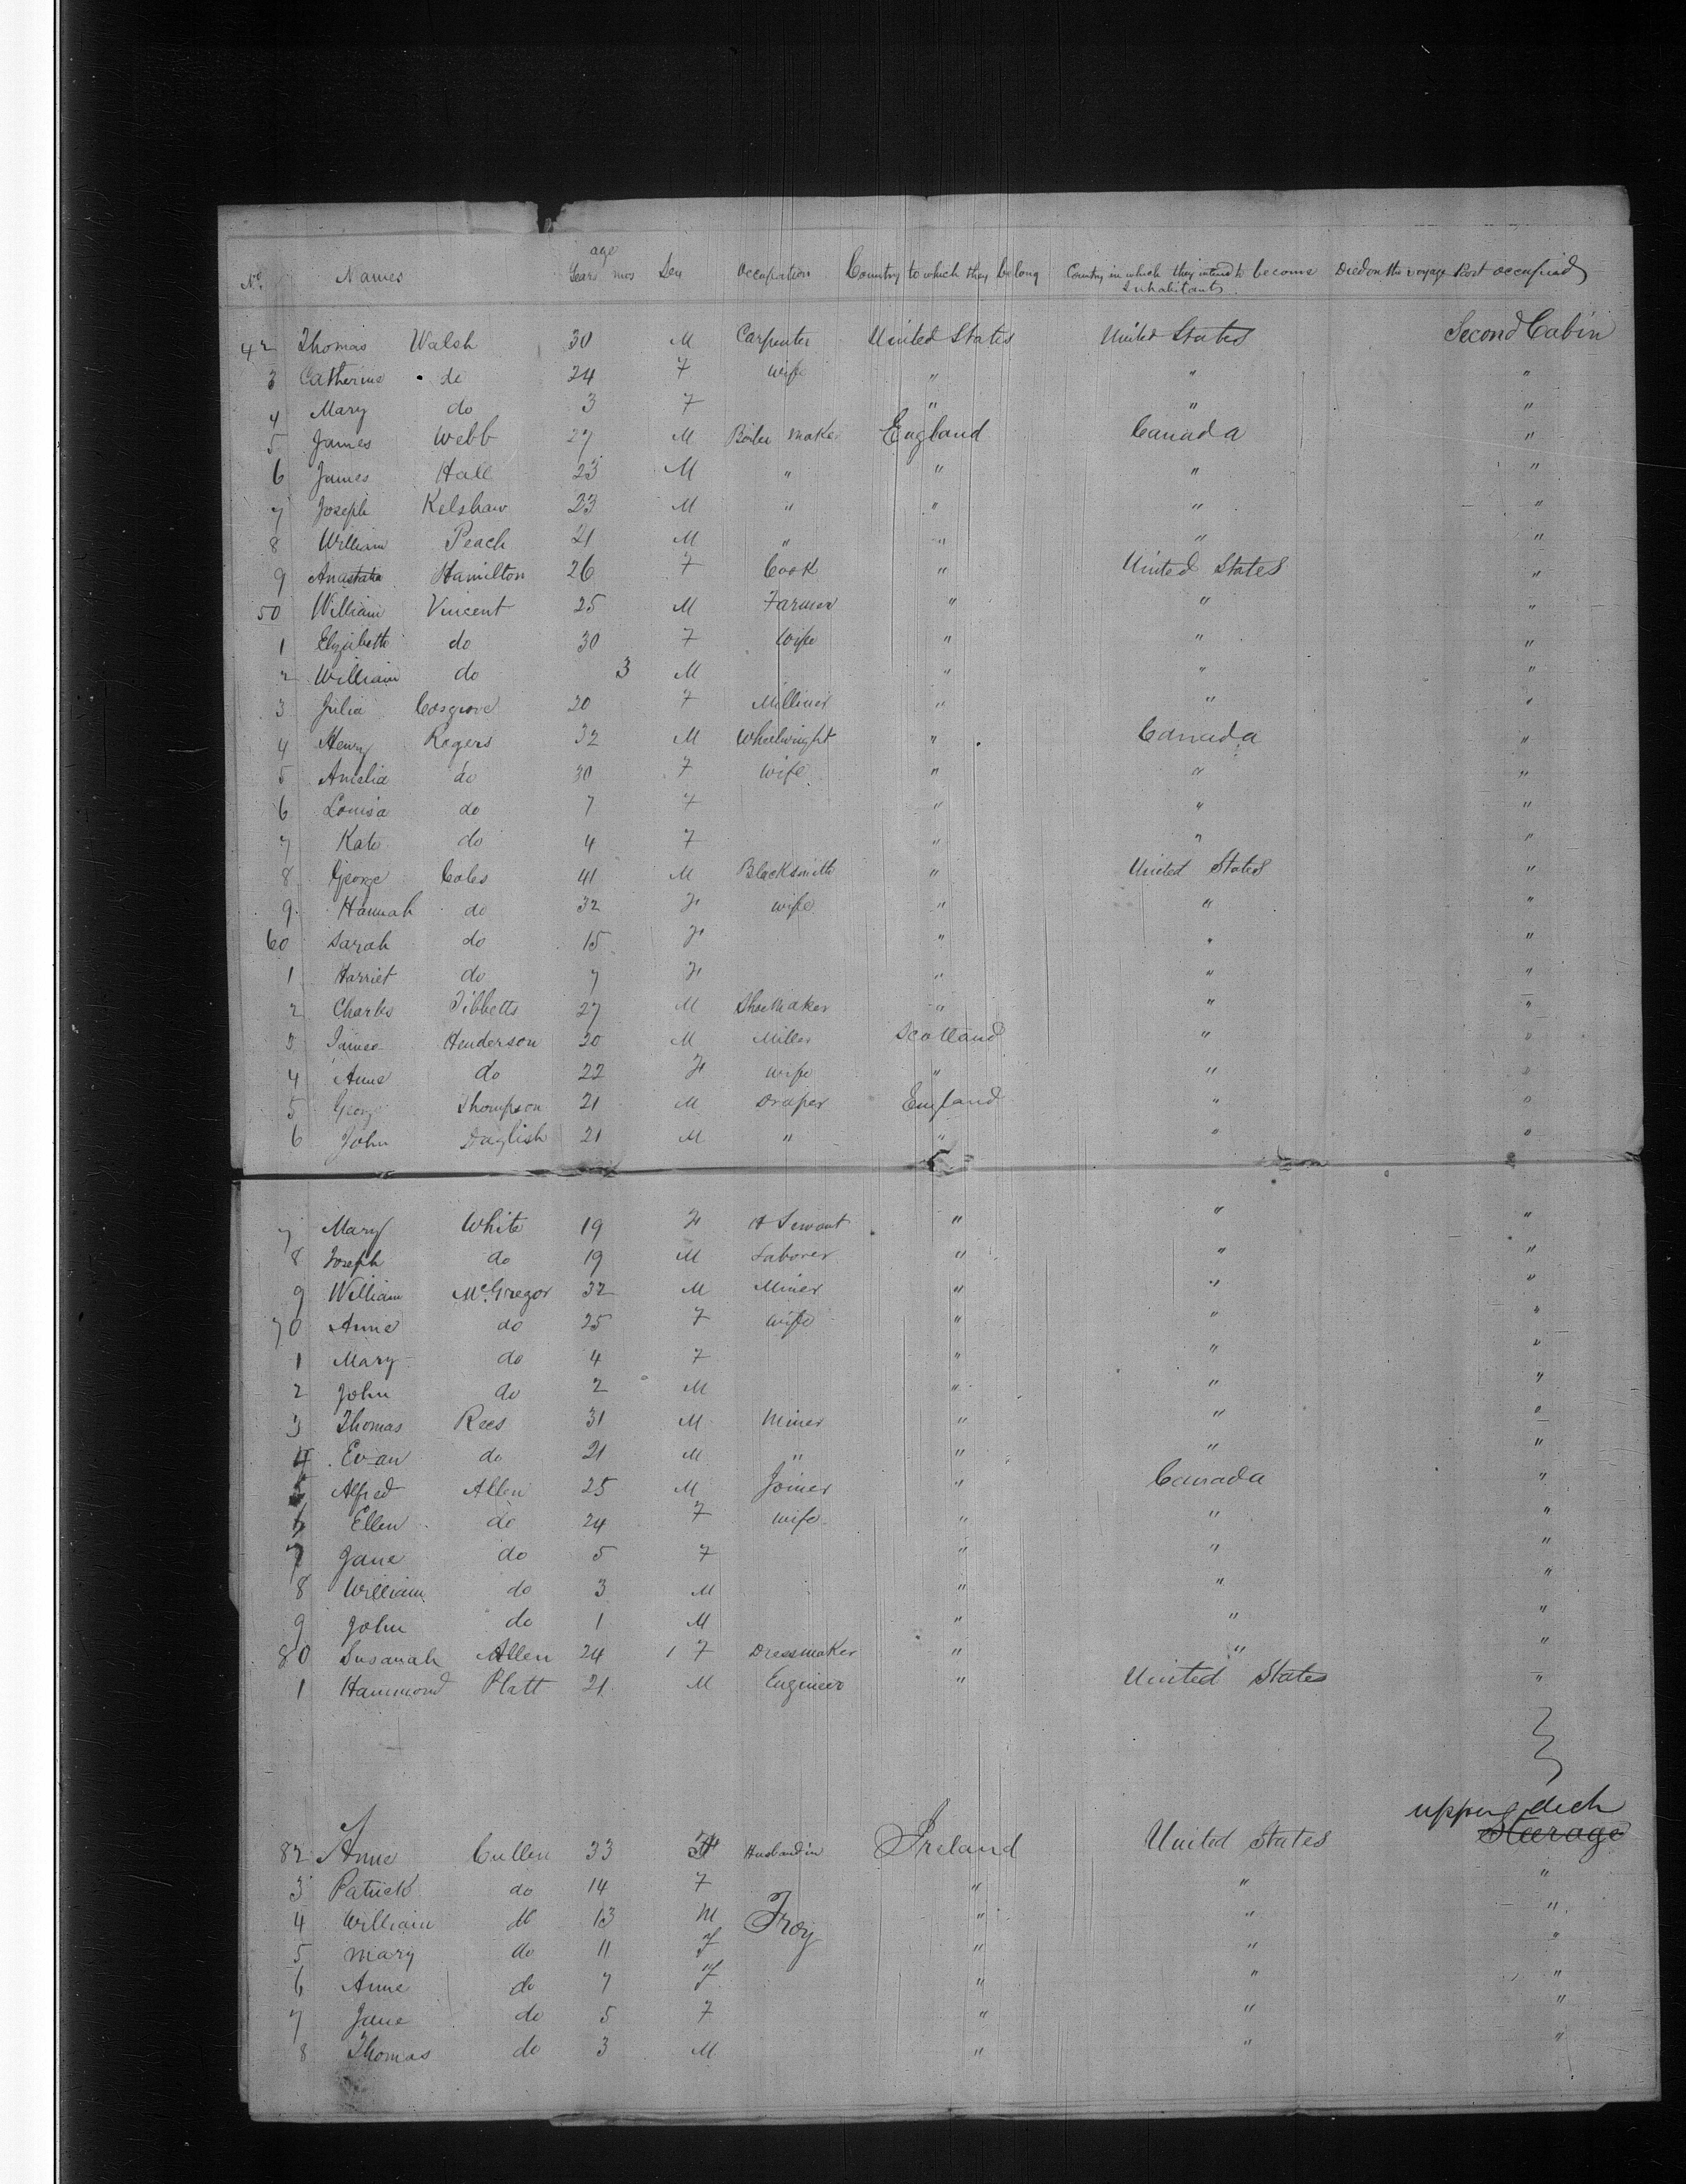 age
No. Names Years mos Sex Occupation Country to which they belong Country in which they intend to become Inhabitants Died on the voyage Part occupied
42 Thomas Walsh 30 M Carpenter United States United States Second Cabin
3 Catherine do 24 F Wife " " "
4 Mary do 3 F " " "
5 James Webb 27 M Boiler maker England Canada "
6 James Hall 23 M " " " "
7 Joseph Kelshaw 23 M " " " "
8 William Peach 21 M " " " "
9 Anastatia Hamilton 26 F Cook " United States "
50 William Vincent 25 M Farmer " " "
1 Elizabeth do 30 F Wife " " "
2 William do 3 M " " "
3 Julia Cosgrove 20 F Milliner " " "
4 Henry Rogers 32 M Wheelwright " Canada "
5 Amelia do 30 F Wife " " "
6 Louisa do 7 F " " "
7 Kate do 4 F " " "
8 George Coles 41 M Blacksmith " United States "
9 Hannah do 32 F wife " " "
60 Sarah do 15 F " " "
1 Harriet do 7 F " " "
2 Charles Tibbetts 27 M Shoemaker " " "
3 James Henderson 20 M Miller Scotland " "
4 Anne do 22 F wife " " "
5 George Thompson 21 M Draper England " "
6 John Daglish 21 M " " " "
7 Mary White 19 F H Servant " " "
8 Joseph do 19 M Laborer " " "
9 William McGregor 32 M Miner " " "
70 Anne do 25 F Wife " " "
1 Mary do 4 F " " "
2 John do 2 M " " "
3 Thomas Rees 31 M Miner " " "
4 Evan do 21 M " " " "
5 Alfred Allen 25 M Joiner " Canada "
6 Ellen do 24 F wife " " "
7 Jane do 5 F " " "
8 William do 3 M " " "
9 John do 1 M " " "
80 Susanah Allen 24 1 F Dressmaker " " "
1 Hammond Platt 21 M Engineer " United States "
upper deck
82 Anne Cullen 33 F Husband in Ireland United States Steerage
3 Patrick do 14 F " " "
4 William do 13 M Troy " " "
5 Mary do 11 F " " "
6 Anne do 7 F " " "
7 Jane do 5 F " " "
8 Thomas do 3 M " " "